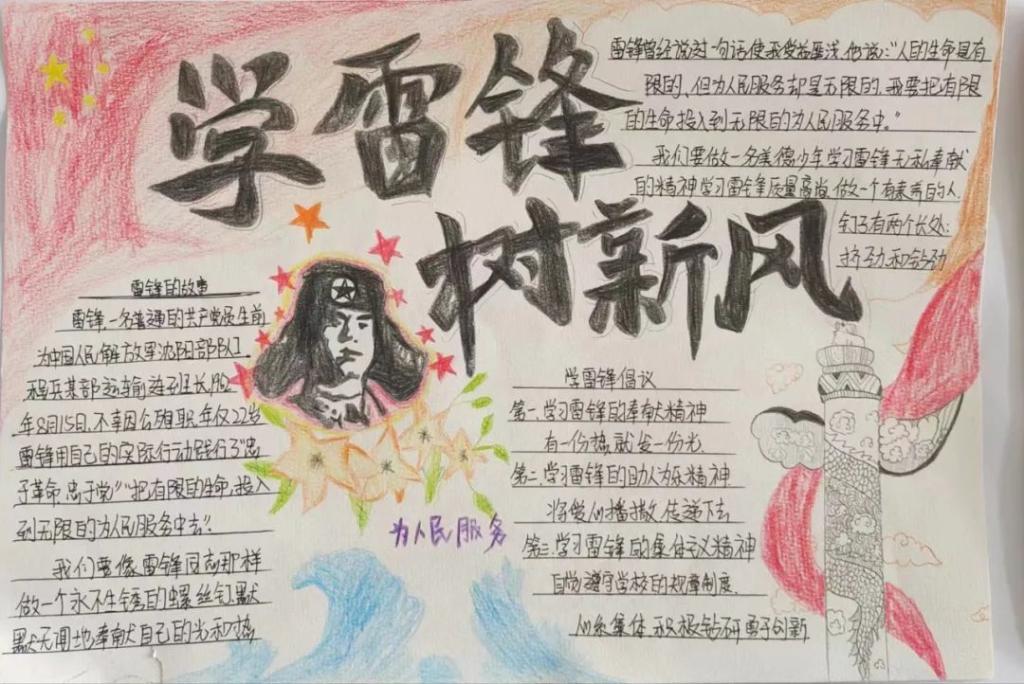 学雷锋
树新风
雷锋曾经说过一句话使我受益匪浅,他说:"人的生命是有
限的,但为人民服务却是无限的,我要把有限
的生命投入到无限的为人民服务中。"
我们要做一名美德少年学习雷锋无私奉献
的精神学习雷锋质量高尚,做一个有素养的人.
钉子有两个长处:
挤劲和钻劲
雷锋的故事
雷锋,一名普通的共产党员生前
为中国人民解放军沈阳部队工
程兵某部运输连班长,1962
年8月15日,不幸因公殉职,年仅22岁
雷锋用自己的实际行动践行了"忠
于革命,忠于党""把有限的生命,投入
到无限的为人民服务中去".
我们要像雷锋同志那样
做一个永不生锈的螺丝钉,默
默无闻地奉献自己的光和热
为人民服务
学雷锋倡议
第一,学习雷锋的奉献精神
有一份热就发一份光.
第二,学习雷锋的助人为乐精神
将爱心播撒,传递下去
第三,学习雷锋的集体主义精神
自觉遵守学校的规章制度.
心系集体 积极钻研 勇于创新